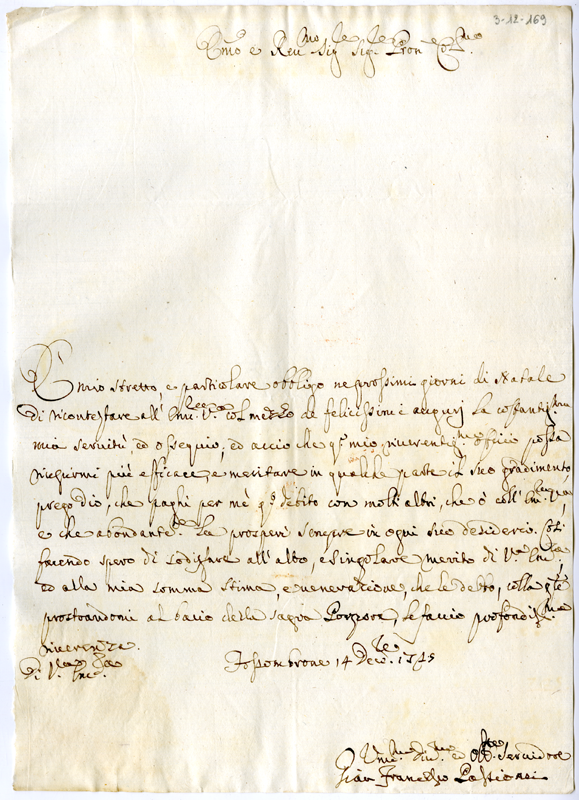 3-12-169
Em̃o e Rev.mo Sig.re Sig.re Pron Col.mo
È mio stretto, e particolare obbligo ne prossimi giorni di Natale
di ricontestare all' Em.za V.a col mezzo de felicissimi augurj la costantis.ma
mia servitù, ed ossequio, ed acciò che q.o mio riverentis.mo officio possa
riuscirmi più efficace, e meritare in qualche parte il suo gradimento,
prego Dio, che paghi per mè q.o debito con molti altri, che ò coll' Em.za V.a,
e che abondante.te La prosperi sempre in ogni suo desiderio. Così
facendo spero di sodisfare all' alto, e singolare merito di V.a Em.za,
ed alla mia somma stima, e venerazione, che le debbo, colla q.le
prostrandomi al bacio della sagra Porpora, le faccio profondis.ma
riverenza.
Di V.a Em.za Fossombrone 14 Dec.re 1745
Um.mo Div.mo ed Obb.mo Servidore
Gian Francesco